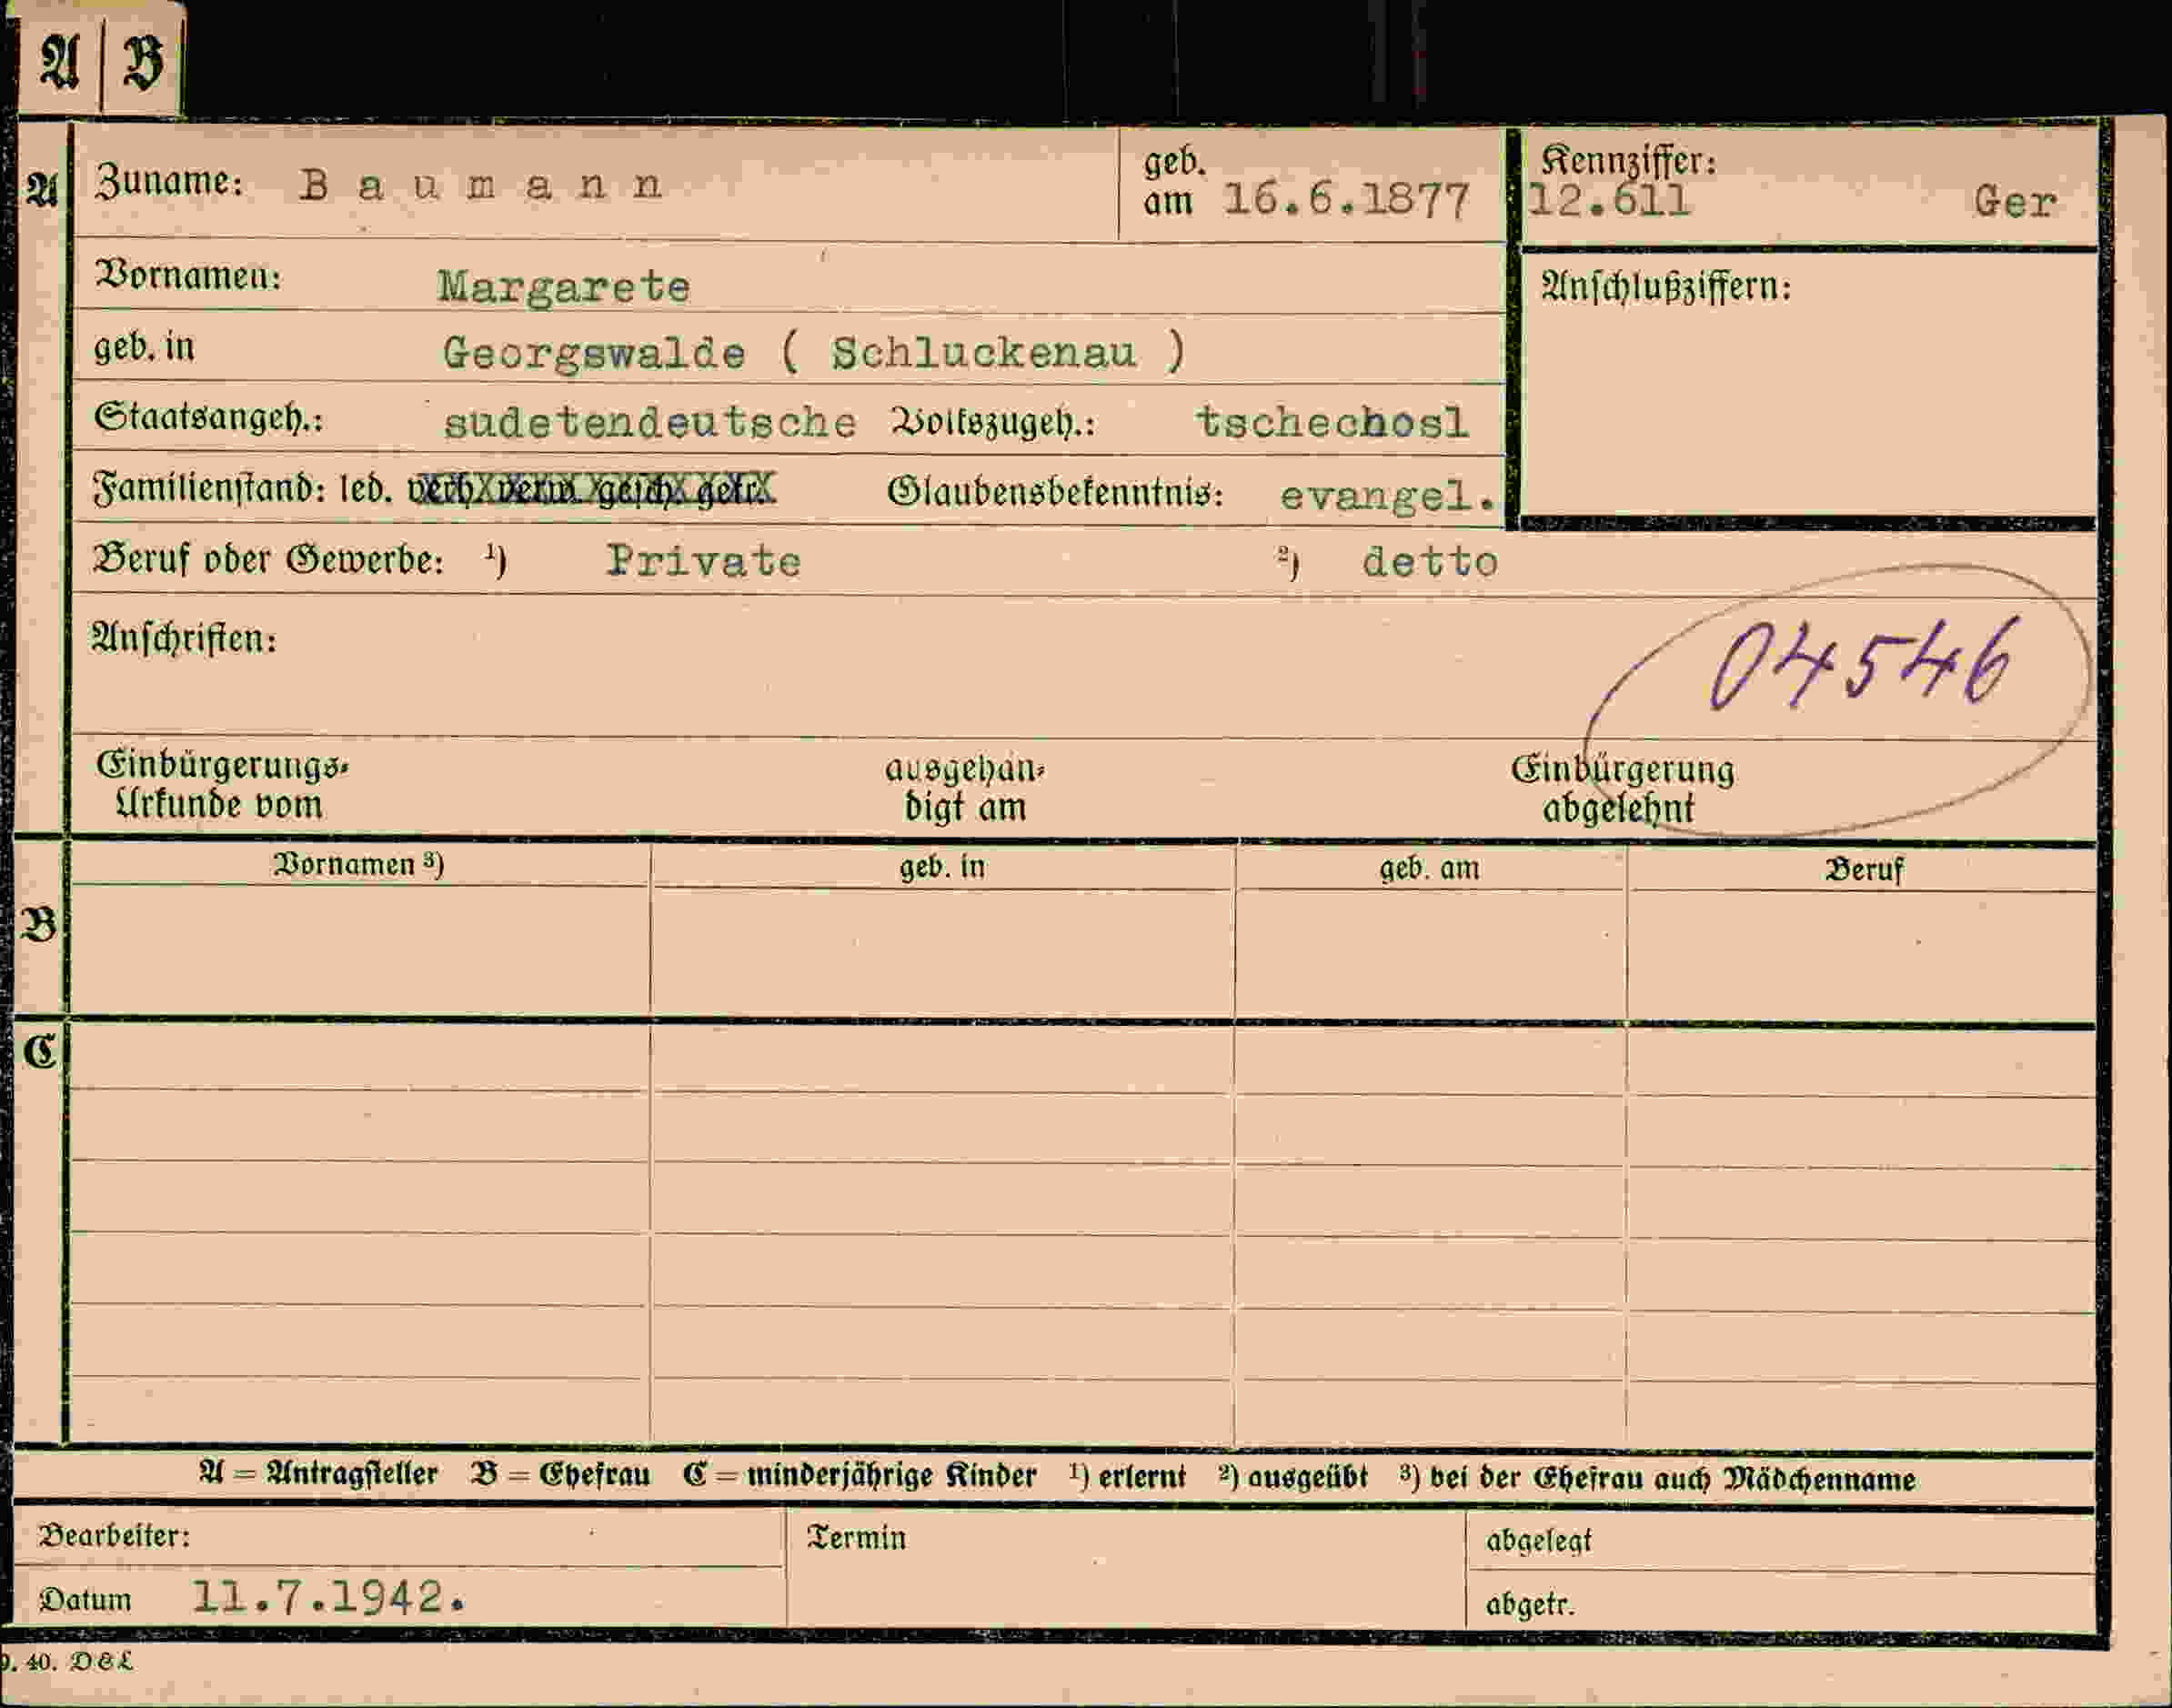 A B
A
Zuname: B a u m a n n
geb. am 16.6.1877
Kennziffer: 12.611 Ger
Vornamen: Margarete
Anschlußziffern:
geb. in Georgswalde ( Schluckenau )
Staatsangeh.: sudetendeutsche Volkszugeh.: tschechosl
Familienstand: led. verh. verw. gesch. getr. Glaubensbekenntnis: evangel.
Beruf oder Gewerbe: ¹) Private ²) detto
Anschriften:
04546
Einbürgerungs-
Urkunde vom
ausgehän-
digt am
Einbürgerung
abgelehnt
B
Vornamen ³) geb. in geb. am Beruf
C
A = Antragsteller B = Ehefrau C = minderjährige Kinder ¹) erlernt ²) ausgeübt ³) bei der Ehefrau auch Mädchenname
Bearbeiter: Termin abgelegt
Datum 11.7.1942. abgetr.
9. 40. D&L